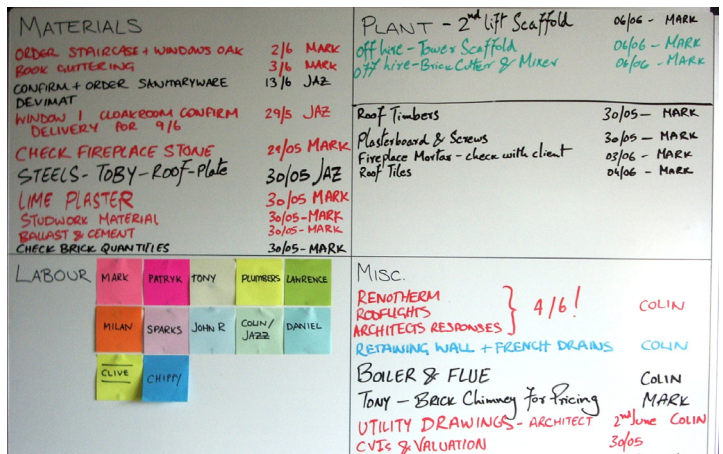 MATERIALS
ORDER STAIRCASE + WINDOWS OAK 2/6 MARK
BOOK GUTTERING 3/6 MARK
CONFIRM + ORDER SANITARYWARE 13/6 JAZ
DEVIMAT
WINDOW 1 CLOAKROOM CONFIRM 29/5 JAZ
DELIVERY FOR 9/6
CHECK FIREPLACE STONE 29/05 MARK
STEELS-TOBY-ROOF-Plate 30/05 JAZ
LIME PLASTER 30/05 MARK
STUDWORK MATERIAL 30/05-MARK
BALLAST & CEMENT 30/05-MARK
CHECK BRICK QUANTITIES 30/05-MARK
PLANT - 2nd lift Scaffold 06/06 - MARK
off hire-Tower Scaffold 06/06 - MARK
off hire-Brick Cutter & Mixer 06/06 - MARK
Roof Timbers 30/05- MARK
Plasterboard & Screws 30/05- MARK
Fireplace Mortar-check with client 03/06 - MARK
Roof Tiles 04/06 - MARK
LABOUR
MARK
PATRYK
TONY
PLUMBERS
LAWRENCE
MILAN
SPARKS
JOHN R
COLIN/
JAZZ
DANIEL
CLIVE
CHIPPY
MISC.
RENOTHERM
ROOFLIGHTS 4/6! COLIN
ARCHITECTS RESPONSES
RETAINING WALL + FRENCH DRAINS COLIN
BOILER & FLUE COLIN
TONY - BRICK Chimney For Pricing MARK
UTILITY DRAWINGS - ARCHITECT 2nd June COLIN
CVIs & VALUATION 30/05